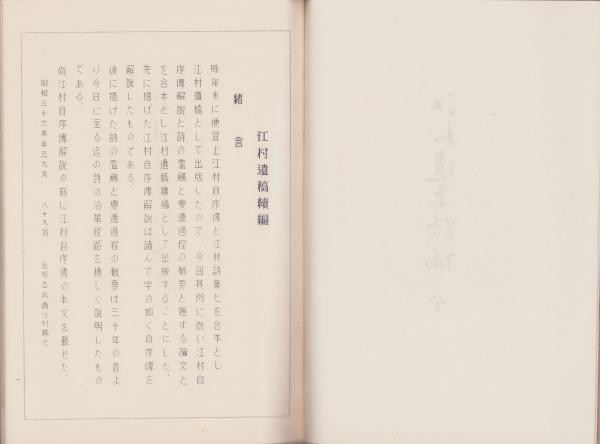 江村遺稿續編
緒言
昨年末に便宜上江村自序傳と江村詩集とを合本とし、
江村遺稿として出版したので、今回其例に倣い江村自
序傳解説と詩の濫觴と變遷過程の概要と題する論文と
を合本とし江村遺稿續編として出版することにした。
先に掲げた江村自序傳解説は讀んで字の如く自序傳を
解説したものである。
後に掲げた詩の濫觴と變遷過程の概要は三千年の昔よ
り今日に至る迄の詩の沿革経路を精しく説明したもの
である。
尚江村自序傳解説の前に江村自序傳の本文を載せた。
昭和三十六年辛丑九月 八十九翁
一